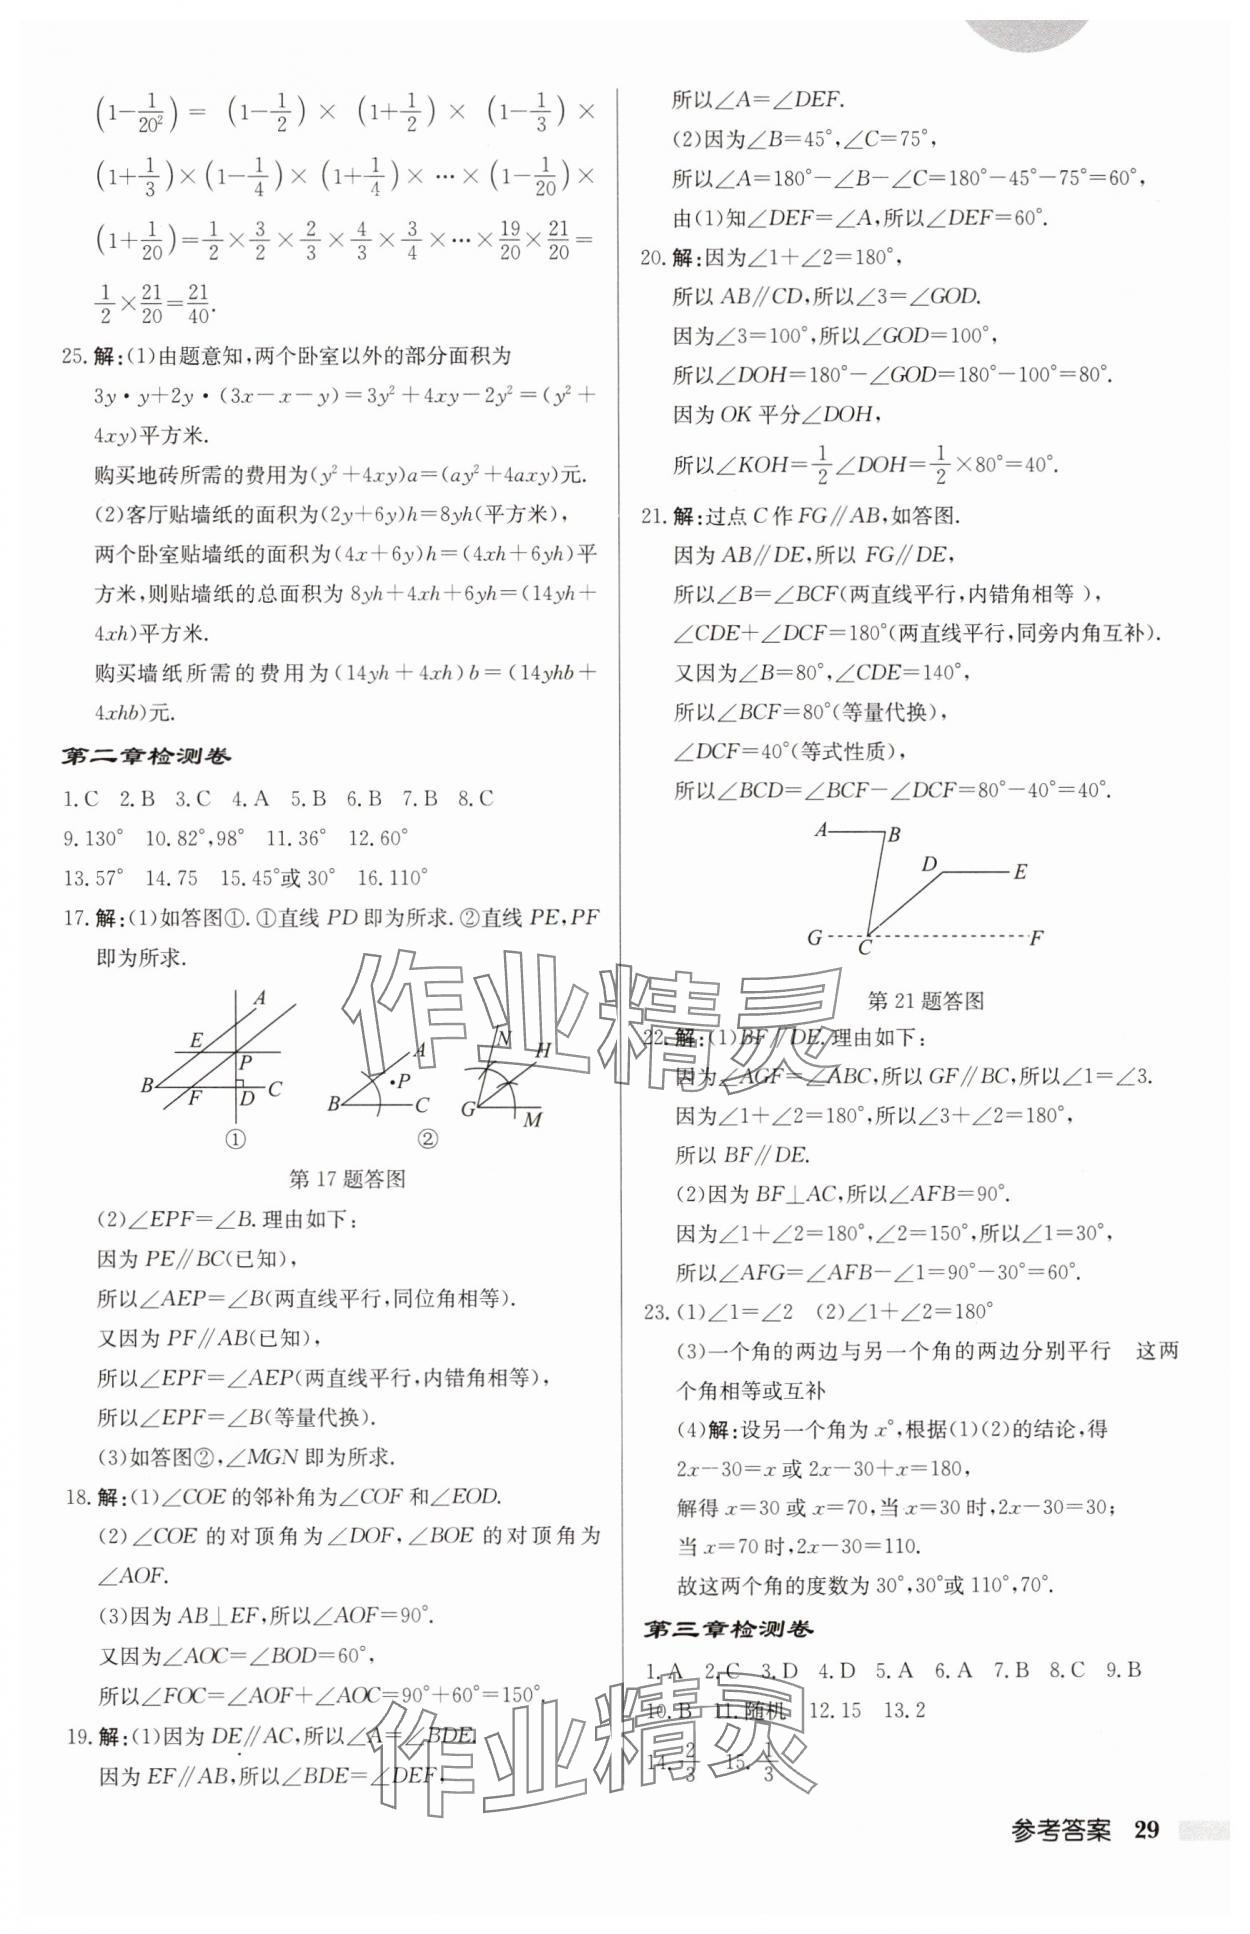 (1-1/20²) = (1-1/2) × (1+1/2) × (1-1/3) ×
(1+1/3)×(1-1/4)×(1+1/4)×…×(1-1/20)×
(1+1/20)=1/2×3/2×2/3×4/3×3/4×…×19/20×21/20=
1/2×21/20=21/40.
25. 解:(1)由题意知,两个卧室以外的部分面积为
3y·y+2y·(3x-x-y)=3y²+4xy-2y²=(y²+
4xy)平方米.
购买地砖所需的费用为(y²+4xy)a=(ay²+4axy)元.
(2)客厅贴墙纸的面积为(2y+6y)h=8yh(平方米),
两个卧室贴墙纸的面积为(4x+6y)h=(4xh+6yh)平
方米,则贴墙纸的总面积为8yh+4xh+6yh=(14yh+
4xh)平方米.
购买墙纸所需的费用为(14yh+4xh)b=(14yhb+
4xhb)元.
第二章检测卷
1.C 2.B 3.C 4.A 5.B 6.B 7.B 8.C
9.130° 10.82°,98° 11.36° 12.60°
13.57° 14.75 15.45°或30° 16.110°
17. 解:(1)如答图①.①直线PD即为所求.②直线PE,PF
即为所求.
A E P B F D C
①
A P B C N H G M
②
第17题答图
(2)∠EPF=∠B.理由如下:
因为PE∥BC(已知),
所以∠AEP=∠B(两直线平行,同位角相等).
又因为PF∥AB(已知),
所以∠EPF=∠AEP(两直线平行,内错角相等),
所以∠EPF=∠B(等量代换).
(3)如答图②,∠MGN即为所求.
18. 解:(1)∠COE的邻补角为∠COF和∠EOD.
(2)∠COE的对顶角为∠DOF,∠BOE的对顶角为
∠AOF.
(3)因为AB⊥EF,所以∠AOF=90°.
又因为∠AOC=∠BOD=60°,
所以∠FOC=∠AOF+∠AOC=90°+60°=150°.
19. 解:(1)因为DE∥AC,所以∠A=∠BDE.
因为EF∥AB,所以∠BDE=∠DEF,
所以∠A=∠DEF.
(2)因为∠B=45°,∠C=75°,
所以∠A=180°-∠B-∠C=180°-45°-75°=60°,
由(1)知∠DEF=∠A,所以∠DEF=60°.
20. 解:因为∠1+∠2=180°,
所以AB∥CD,所以∠3=∠GOD.
因为∠3=100°,所以∠GOD=100°,
所以∠DOH=180°-∠GOD=180°-100°=80°.
因为OK平分∠DOH,
所以∠KOH=1/2∠DOH=1/2×80°=40°.
21. 解:过点C作FG∥AB,如答图.
因为AB∥DE,所以FG∥DE,
所以∠B=∠BCF(两直线平行,内错角相等),
∠CDE+∠DCF=180°(两直线平行,同旁内角互补).
又因为∠B=80°,∠CDE=140°,
所以∠BCF=80°(等量代换),
∠DCF=40°(等式性质),
所以∠BCD=∠BCF-∠DCF=80°-40°=40°.
A B D E G C F
第21题答图
22. 解:(1)BF∥DE.理由如下:
因为∠AGF=∠ABC,所以GF∥BC,所以∠1=∠3.
因为∠1+∠2=180°,所以∠3+∠2=180°,
所以BF∥DE.
(2)因为BF⊥AC,所以∠AFB=90°.
因为∠1+∠2=180°,∠2=150°,所以∠1=30°,
所以∠AFG=∠AFB-∠1=90°-30°=60°.
23. (1)∠1=∠2 (2)∠1+∠2=180°
(3)一个角的两边与另一个角的两边分别平行 这两
个角相等或互补
(4)解:设另一个角为x°,根据(1)(2)的结论,得
2x-30=x或2x-30+x=180,
解得x=30或x=70,当x=30时,2x-30=30;
当x=70时,2x-30=110.
故这两个角的度数为30°,30°或110°,70°.
第三章检测卷
1.A 2.C 3.D 4.D 5.A 6.A 7.B 8.C 9.B
10.B 11.随机 12.15 13.2
14.2/3 15.1/3
参考答案 29
作业精灵
作业精灵